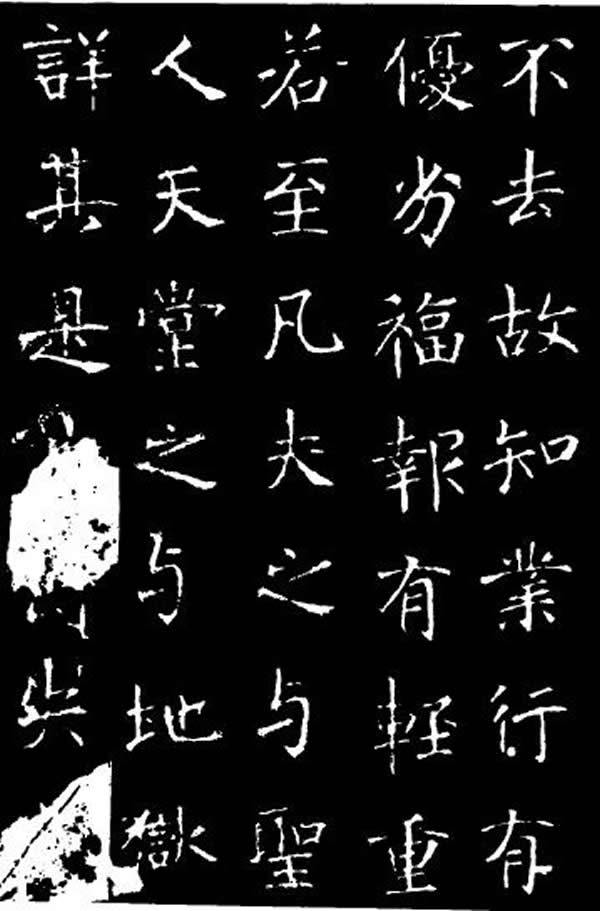 不去故知業行有
優劣福報有輕重
若至凡夫之与聖
人天堂之与地獄
詳其是